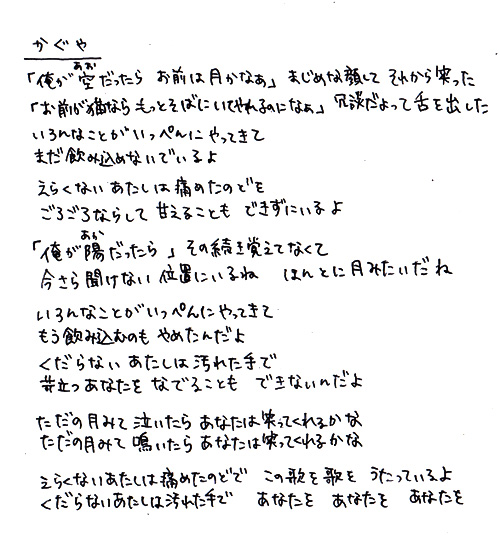 かぐや
「俺が空(あお)だったら お前は月かなぁ」 まじめな顔して それから笑った
「お前が猫なら もっとそばにいてやれるのになぁ」 冗談だよって舌を出した
いろんなことが いっぺんに やってきて
まだ飲み込めないでいるよ
えらくない あたしは 痛めたのどを
ごろごろならして 甘えることも できずにいるよ
「俺が陽(あか)だったら 」 その続き覚えてなくて
今さら聞けない 位置にいるね ほんとに月みたいだね
いろんなことが いっぺんに やってきて
もう飲み込むのも やめたんだよ
くだらない あたしは 汚れた手で
苛立つ あなたを なでることも できないんだよ
ただの月みて 泣いたら あなたは笑ってくれるかな
ただの月みて 鳴いたら あなたは笑ってくれるかな
えらくないあたしは 痛めたのどで この歌を歌を うたっているよ
くだらないあたしは汚れた手で あなたを あなたを あなたを